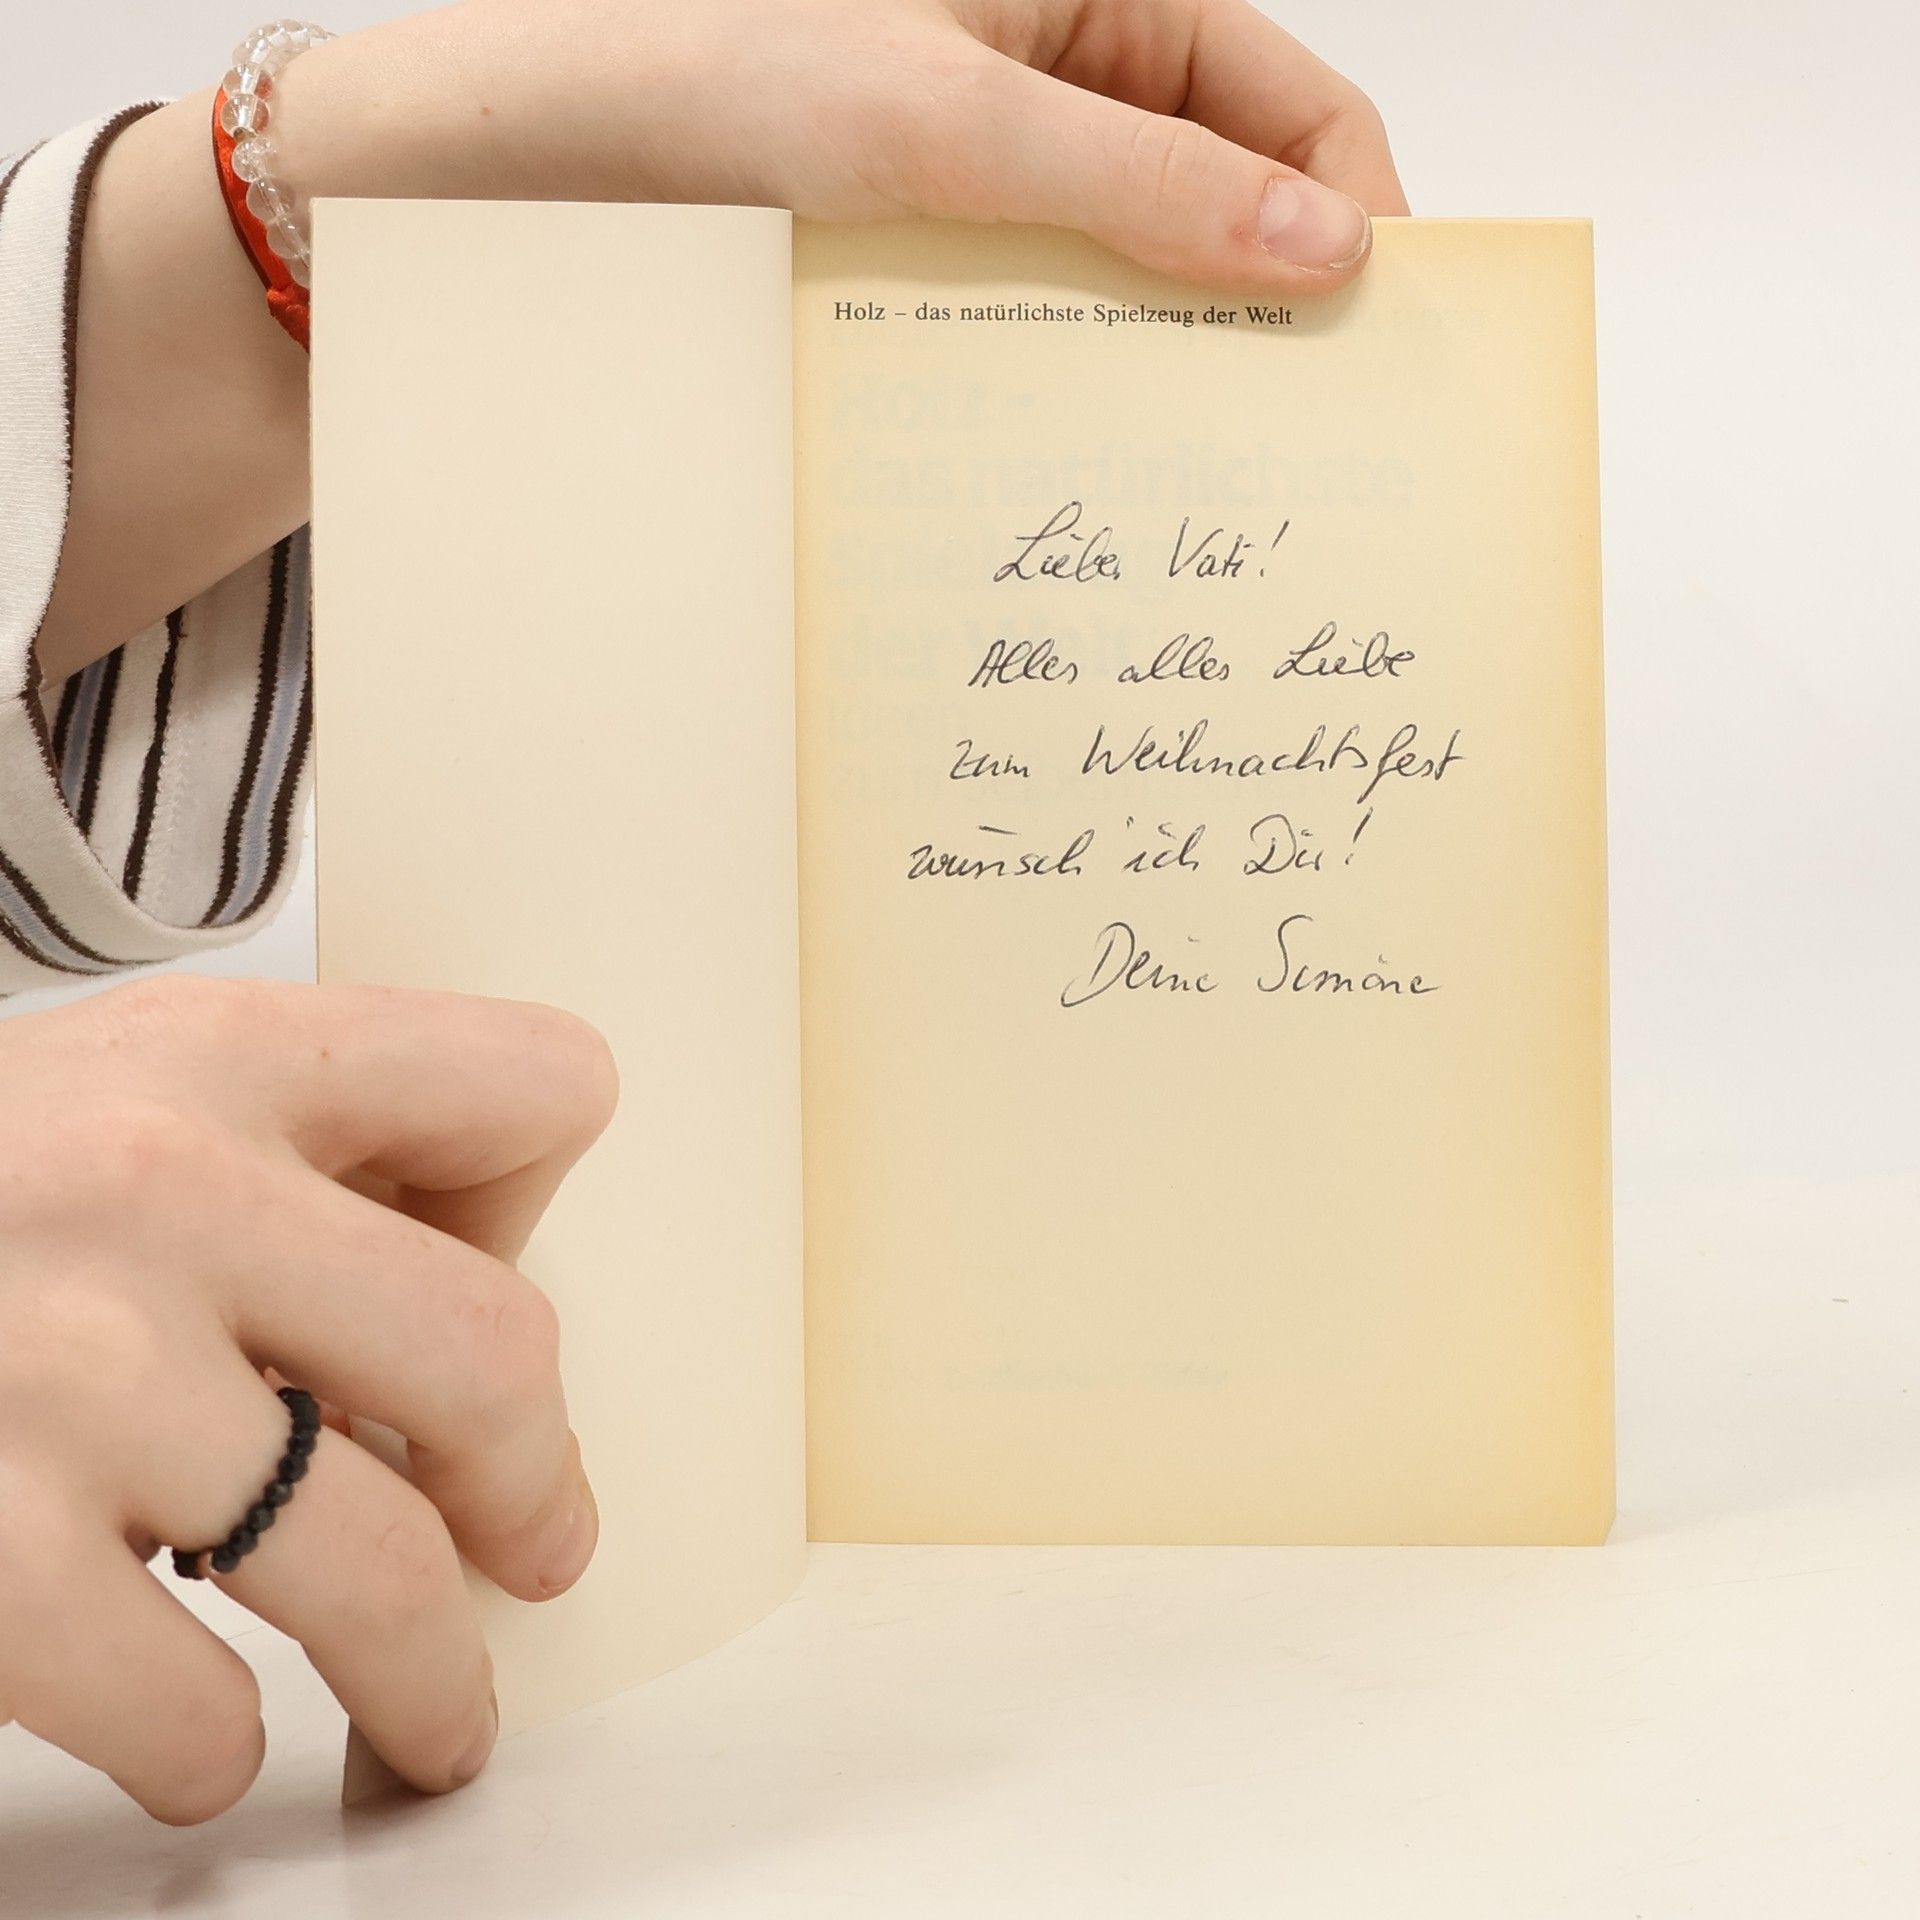 Holz – das natürlichste Spielzeug der Welt
Lieber Vati!
Alles alles Liebe
zum Weihnachtsfest
wünsch ich Dir!
Deine Simone